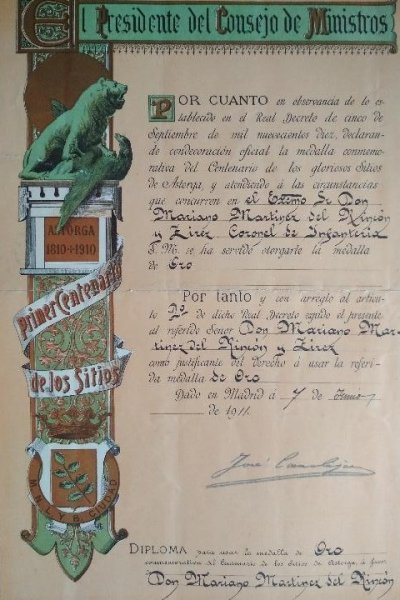 El Presidente del Consejo de Ministros
POR CUANTO en observancia de lo es-
tablecido en el Real Decreto de cinco de
Septiembre de mil nuevecientos diez, declaran-
do condecoración oficial la medalla conmemo-
rativa del Centenario de los gloriosos Sitios
de Astorga, y atendiendo á las circunstancias
que concurren en el Exmo Sr Don
Mariano Martinez del Rincón
y Zirez Coronel de Infanteria
S. M. se ha servido otorgarle la medalla
de Oro
ASTORGA
1810-1910
Primer Centenario
de los Sitios
Por tanto y con arreglo al articu-
lo 2º de dicho Real Decreto expido el presente
al referido Señor Don Mariano Mar-
tinez del Rincón y Zirez
como justificante del derecho á usar la referi-
da medalla de Oro
Dado en Madrid á 7 de Junio
de 1911.
M. N. L. Y B. CIUDAD
José Canalejas
DIPLOMA para usar la medalla de Oro
conmemorativa del Centenario de los Sitios de Astorga, á favor
Don Mariano Martinez del Rincón